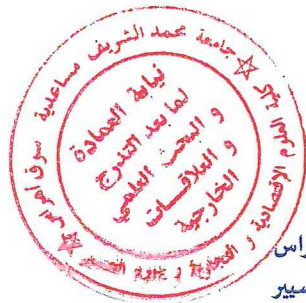 جامعة محمد الشريف مساعدية سوق أهراس
كلية العلوم الاقتصادية و التجارية و علوم التسيير
نيابة العمادة
لما بعد التدرج
و البحث العلمي
و العلاقات
الخارجية
راس
سيير